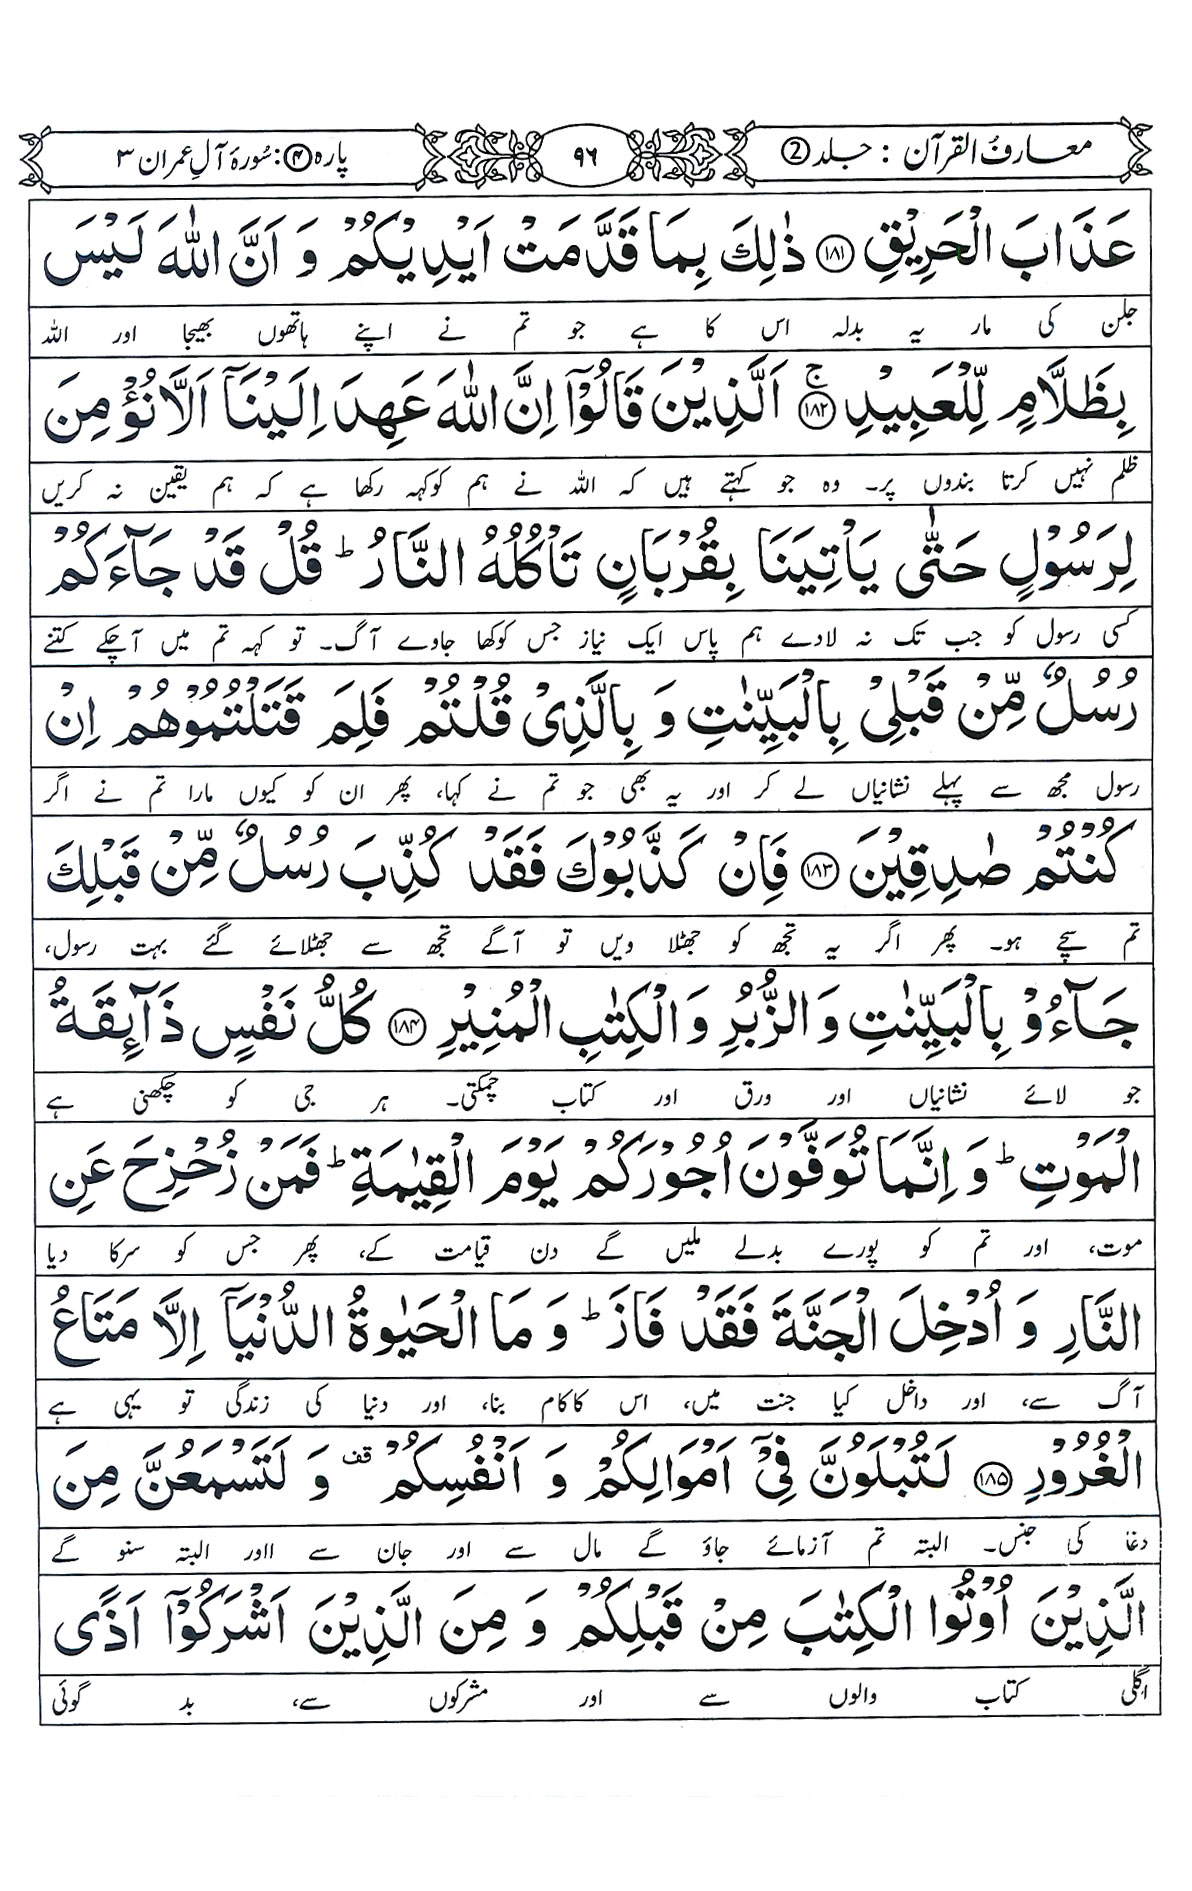 معارف القرآن : جلد ②
۹۶
پارہ ④ : سُورۂ آلِ عمران ۳
عَذَابَ الْحَرِيْقِ ۝۱۸۱ ذٰلِكَ بِمَا قَدَّمَتْ اَيْدِيْكُمْ وَ اَنَّ اللّٰهَ لَيْسَ
جلن کی مار یہ بدلہ اس کا ہے جو تم نے اپنے ہاتھوں بھیجا اور اللہ
بِظَلَّامٍ لِّلْعَبِيْدِ ۝۱۸۲ۚ اَلَّذِيْنَ قَالُوْٓا اِنَّ اللّٰهَ عَهِدَ اِلَيْنَآ اَلَّا نُؤْمِنَ
ظلم نہیں کرتا بندوں پر۔ وہ جو کہتے ہیں کہ اللہ نے ہم کوکہہ رکھا ہے کہ ہم یقین نہ کریں
لِرَسُوْلٍ حَتّٰى يَاْتِيَنَا بِقُرْبَانٍ تَاْكُلُهُ النَّارُ ؕ قُلْ قَدْ جَآءَكُمْ
کسی رسول کو جب تک نہ لادے ہم پاس ایک نیاز جس کوکھا جاوے آگ۔ تو کہہ تم میں آچکے کتنے
رُسُلٌ مِّنْ قَبْلِيْ بِالْبَيِّنٰتِ وَ بِالَّذِيْ قُلْتُمْ فَلِمَ قَتَلْتُمُوْهُمْ اِنْ
رسول مجھ سے پہلے نشانیاں لے کر اور یہ بھی جو تم نے کہا، پھر ان کو کیوں مارا تم نے اگر
كُنْتُمْ صٰدِقِيْنَ ۝۱۸۳ فَاِنْ كَذَّبُوْكَ فَقَدْ كُذِّبَ رُسُلٌ مِّنْ قَبْلِكَ
تم سچے ہو۔ پھر اگر یہ تجھ کو جھٹلا ویں تو آگے تجھ سے جھٹلائے گئے بہت رسول،
جَآءُوْ بِالْبَيِّنٰتِ وَ الزُّبُرِ وَ الْكِتٰبِ الْمُنِيْرِ ۝۱۸۴ كُلُّ نَفْسٍ ذَآئِقَةُ
جو لائے نشانیاں اور ورق اور کتاب چمکتی۔ ہر جی کو چکھنی ہے
الْمَوْتِ ؕ وَ اِنَّمَا تُوَفَّوْنَ اُجُوْرَكُمْ يَوْمَ الْقِيٰمَةِ ؕ فَمَنْ زُحْزِحَ عَنِ
موت، اور تم کو پورے بدلے ملیں گے دن قیامت کے، پھر جس کو سرکا دیا
النَّارِ وَ اُدْخِلَ الْجَنَّةَ فَقَدْ فَازَ ؕ وَ مَا الْحَيٰوةُ الدُّنْيَآ اِلَّا مَتَاعُ
آگ سے، اور داخل کیا جنت میں، اس کاکام بنا، اور دنیا کی زندگی تو یہی ہے
الْغُرُوْرِ ۝۱۸۵ لَتُبْلَوُنَّ فِيْٓ اَمْوَالِكُمْ وَ اَنْفُسِكُمْ قف وَ لَتَسْمَعُنَّ مِنَ
دغا کی جنس۔ البتہ تم آزمائے جاؤ گے مال سے اور جان سے ااور البتہ سنو گے
الَّذِيْنَ اُوْتُوا الْكِتٰبَ مِنْ قَبْلِكُمْ وَ مِنَ الَّذِيْنَ اَشْرَكُوْٓا اَذًى
اگلی کتاب والوں سے اور مشرکوں سے، بد گوئی